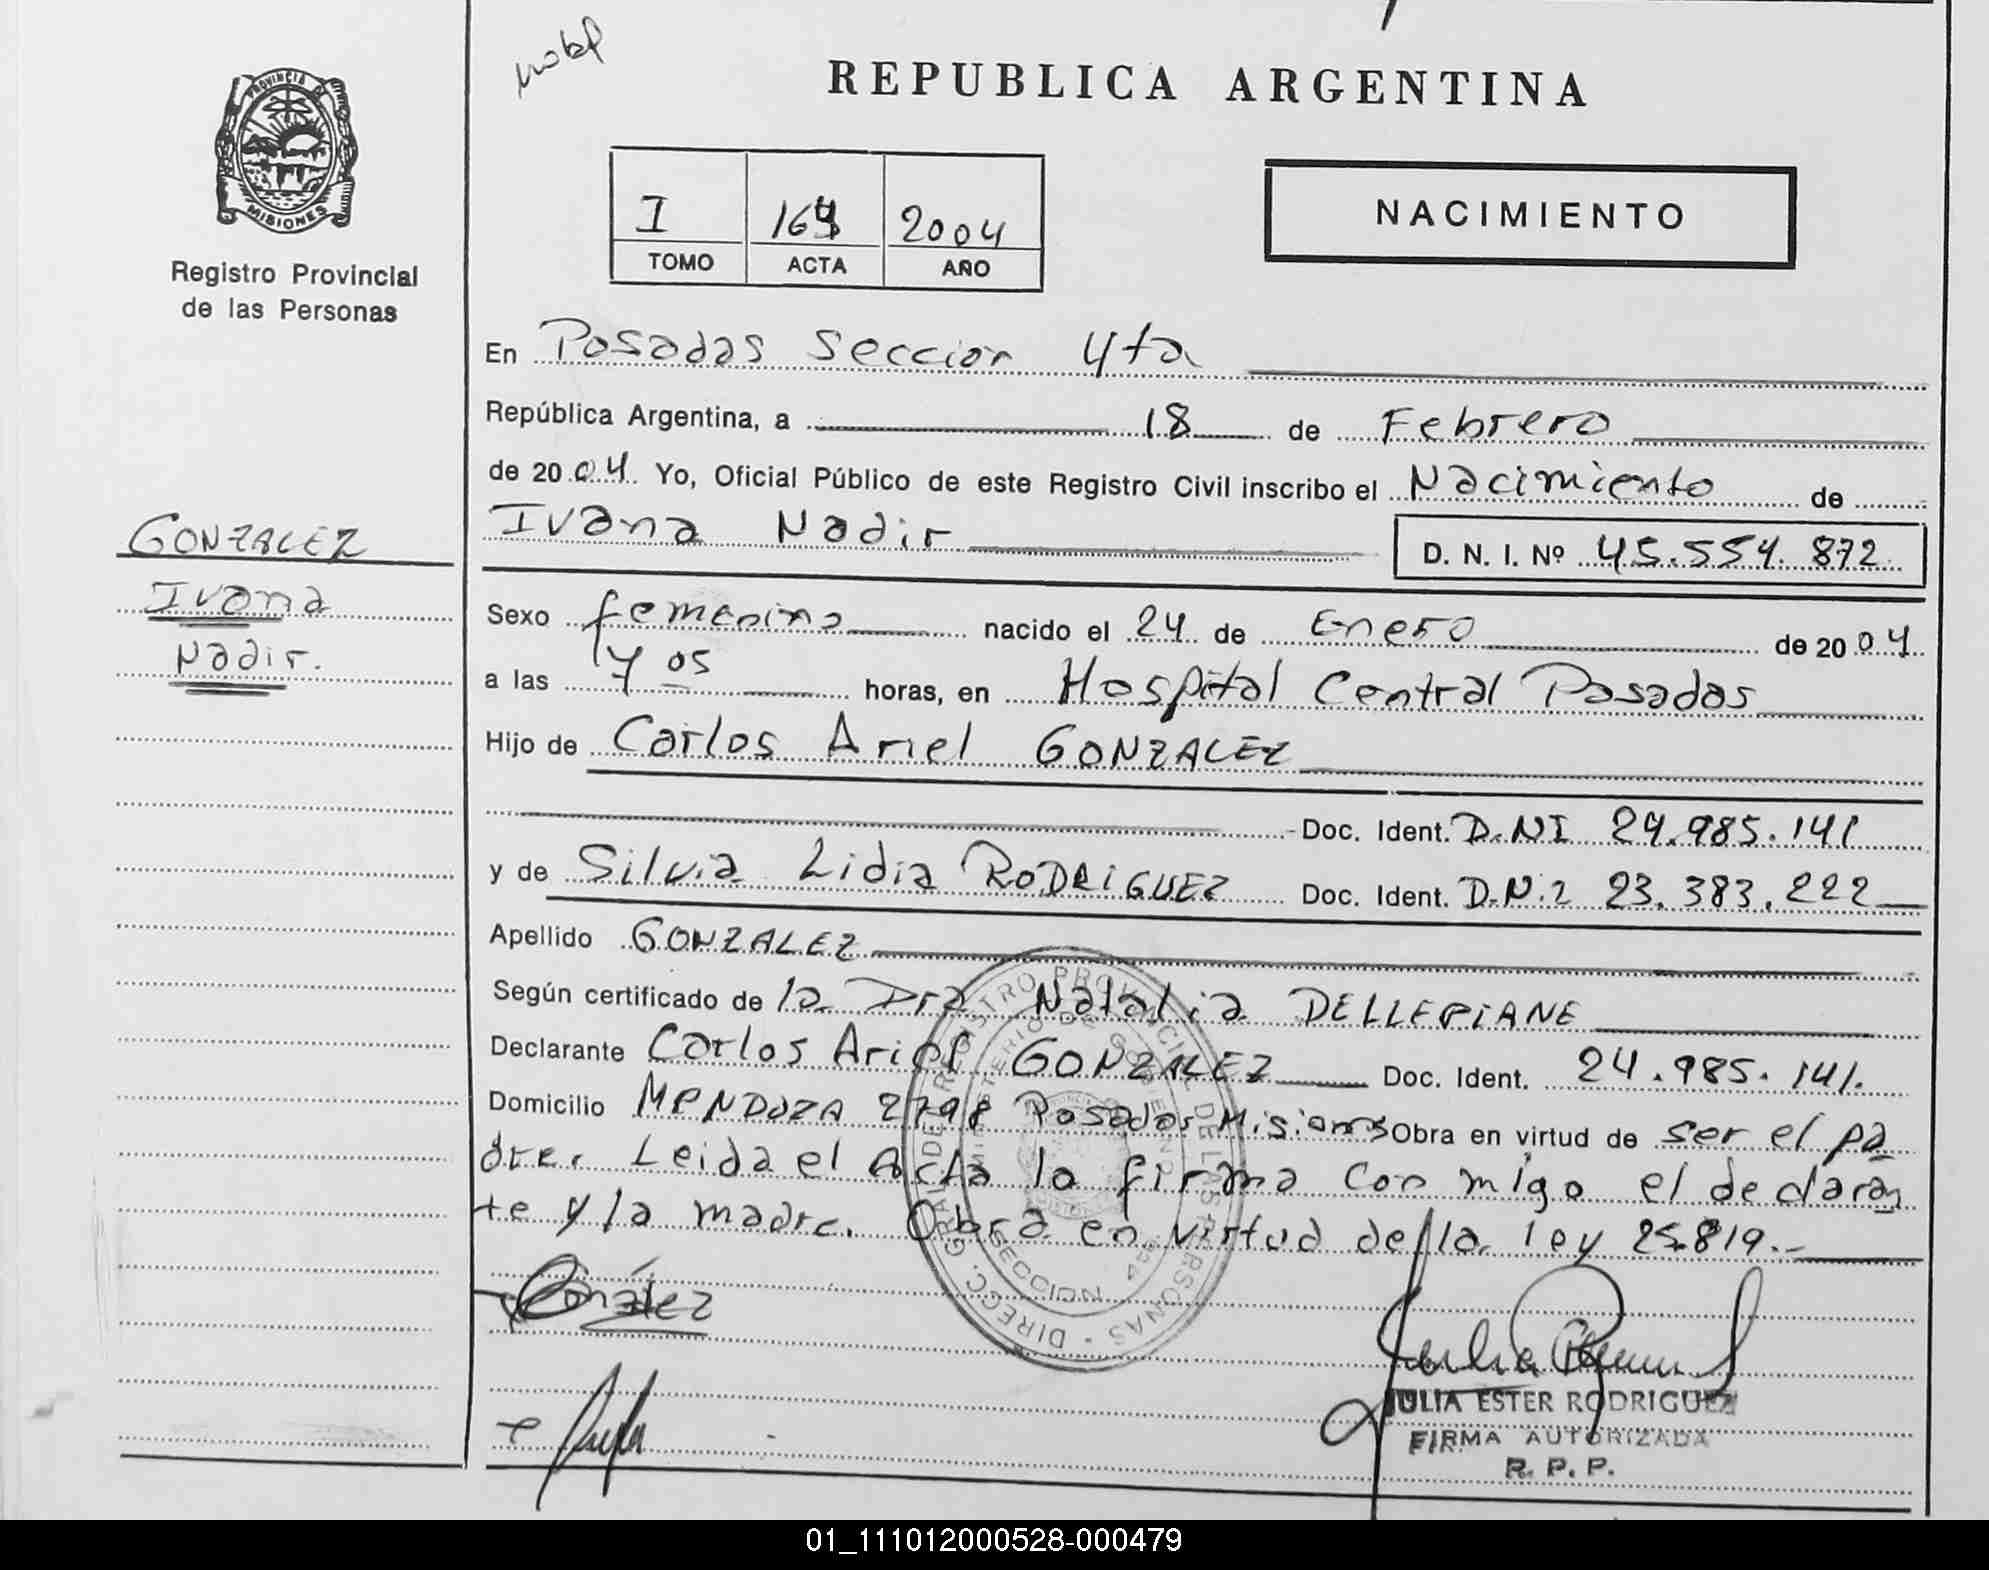 REPUBLICA ARGENTINA
PROVINCIA DE
MISIONES
Registro Provincial
de las Personas
I 2004
TOMO ACTA AÑO
NACIMIENTO
En Posadas Seccion 4ta
República Argentina, a 18 de Febrero
de 2004. Yo, Oficial Público de este Registro Civil inscribo el Nacimiento de
Ivana Nadir D. N. I. Nº 45.554.872
GONZALEZ
Ivana
Nadir.
Sexo femenino nacido el 24 de Enero de 2004
a las horas, en Hospital Central Posadas
Hijo de Carlos Ariel GONZALEZ
Doc. Ident. D.NI 24.985.141
y de Silvia Lidia RODRIGUEZ Doc. Ident. D.N.I 23.383.222
Apellido GONZALEZ
Según certificado de la Dra Natalia DELLEPIANE
Declarante Carlos Ariel GONZALEZ Doc. Ident. 24.985.141.
Domicilio MENDOZA 2798 Posadas Misiones Obra en virtud de ser el pa
dre. Leida el Acta la firma con migo el declaran
te y la madre. Obra en virtud de la ley 25.819.-
González
JULIA ESTER RODRIGUEZ
FIRMA AUTORIZADA
R. P. P.
DIRECC. GRAL DE REGISTRO PROVINCIAL DE LAS PERSONAS
MINISTERIO DE GOBIERNO
SECCION 4ta
01_111012000528-000479